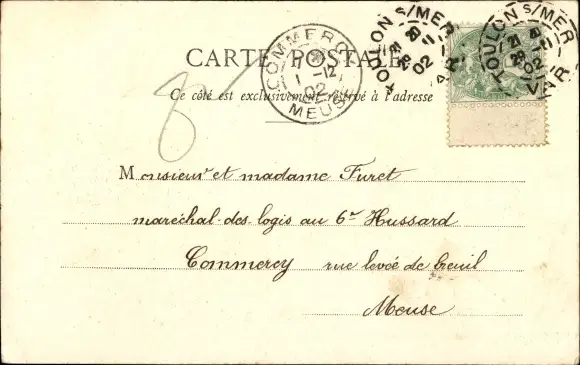 CARTE POSTALE
Ce côté est exclusivement réservé à l'adresse
COMMERCY
1 -12
02
MEUSE
TOULON S/MER
28 11
02
VAR
TOULON S/MER
28 11
02
VAR
8
Monsieur et madame Furet
maréchal-des-logis au 6e Hussard
Commercy rue levée de breuil
Meuse